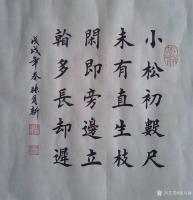 小松初數尺
未有直生枝
閑即旁邊立
看多長却遲
戊戌年春